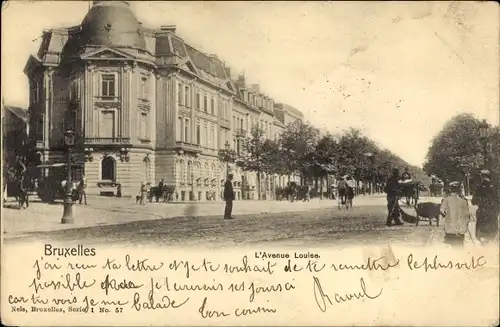 Bruxelles
L'Avenue Louise.
j'ai reçu ta lettre et je te souhait de te remettre le plus vit
possible je t'ecris ses jours ci
car tu vois je me balade
bon cousin
Raoul
Nels, Bruxelles, Serie 1 No. 57